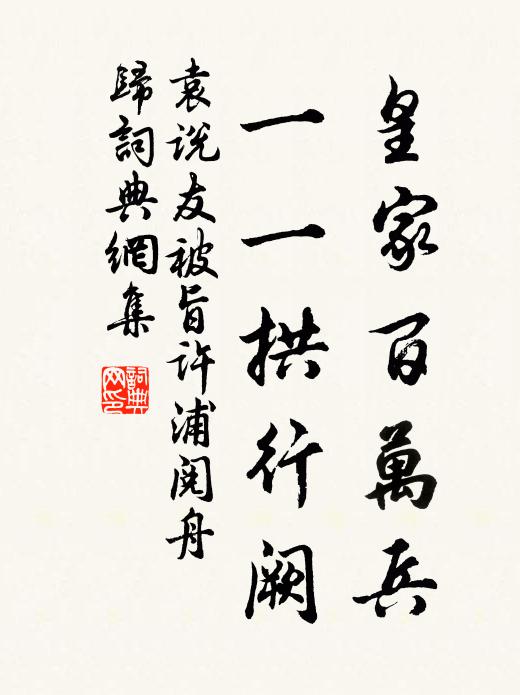 皇家百萬兵
一一拱行闕
袁说友被旨许浦阅舟
歸詞典網集
詞典网印